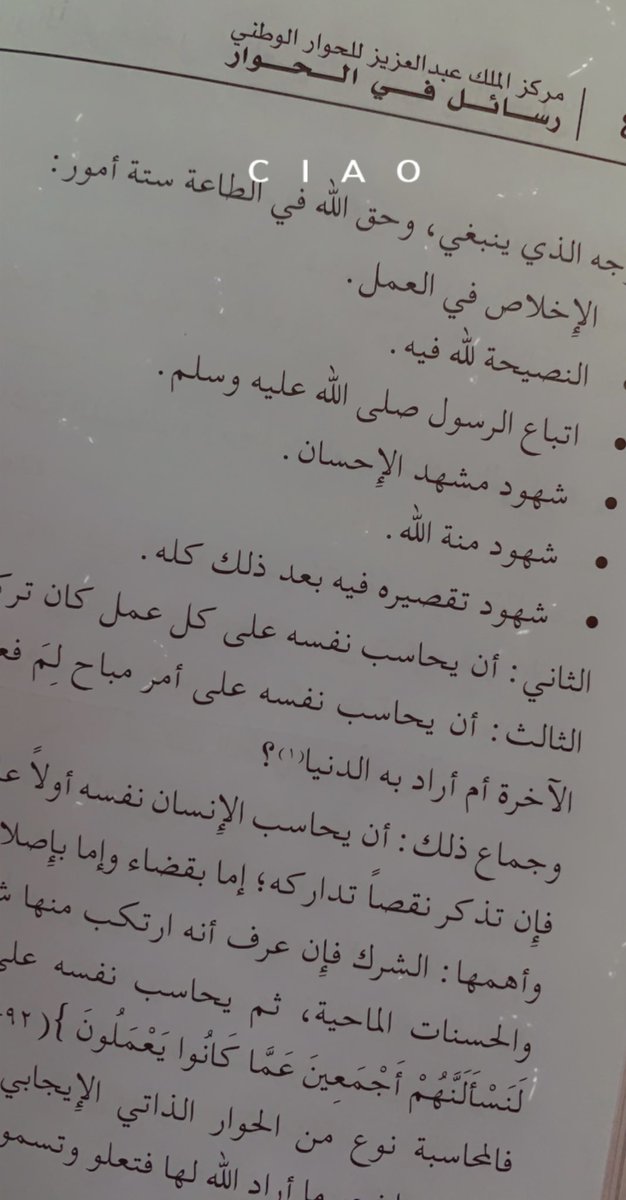 مركز الملك عبدالعزيز للحوار الوطني
رسائل في الحوار
CIAO
الذي ينبغي، وحق الله في الطاعة ستة أمور:
الإِخلاص في العمل.
النصيحة لله فيه.
• اتباع الرسول صلى الله عليه وسلم.
• شهود مشهد الإِحسان.
• شهود منة الله.
• شهود تقصيره فيه بعد ذلك كله.
الثاني: أن يحاسب نفسه على كل عمل كان
الثالث: أن يحاسب نفسه على أمر مباح لِمَ
الآخرة أم أراد به الدنيا(١)؟
وجماع ذلك: أن يحاسب الإِنسان نفسه أولاً
فإِن تذكر نقصاً تداركه؛ إما بقضاء وإما
وأهمها: الشرك فإِن عرف أنه ارتكب منها
والحسنات الماحية، ثم يحاسب نفسه
لَنَسْأَلَنَّهُمْ أَجْمَعِينَ عَمَّا كَانُوا يَعْمَلُونَ }(٩٢
فالمحاسبة نوع من الحوار الذاتي الإِيجابي
ما أراد الله لها فتعلو